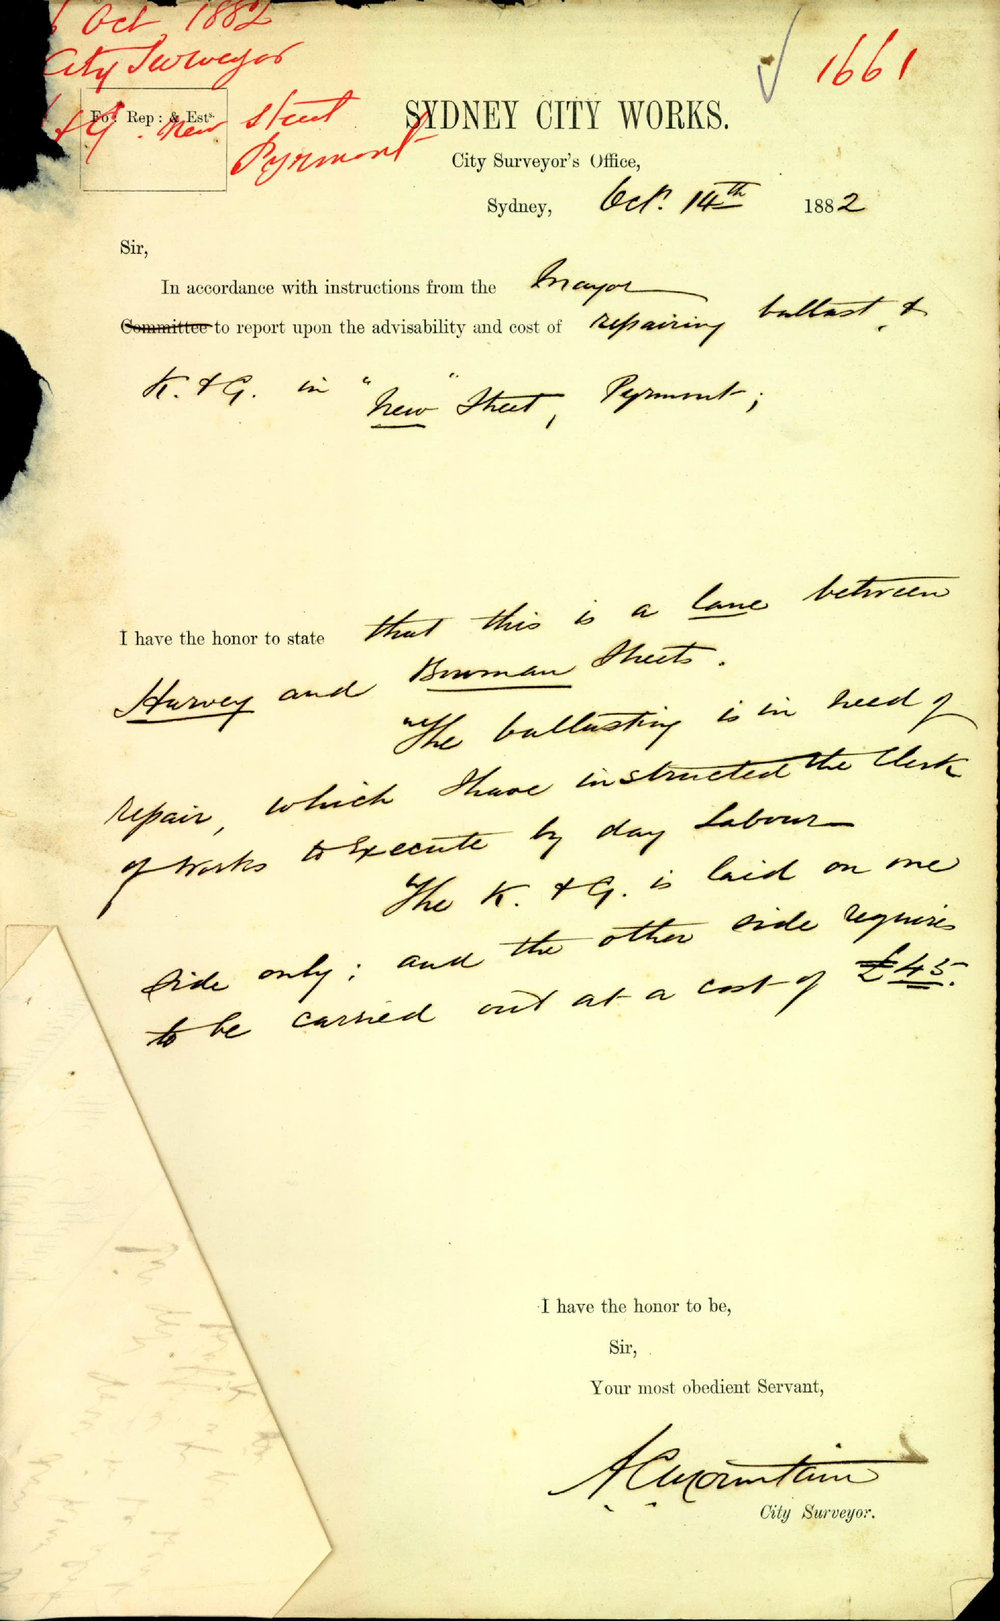 Oct 1882
City Surveyor
1661
Fo: Rep: & Ests.
& G. New Street
Pyrmont
SYDNEY CITY WORKS.
City Surveyor's Office,
Sydney, Oct. 14th 1882
Sir,
In accordance with instructions from the Mayor
Committee to report upon the advisability and cost of repairing ballast &
K. & G. in "New" Street, Pyrmont;
I have the honor to state that this is a lane between
Harvey and Bowman Streets.
The ballasting is in need of
repair, which I have instructed the Clerk
of Works to Execute by day labour
The K. & G. is laid on one
side only; and the other side requires
to be carried out at a cost of £45.
I have the honor to be,
Sir,
Your most obedient Servant,
A C Mountain
City Surveyor.